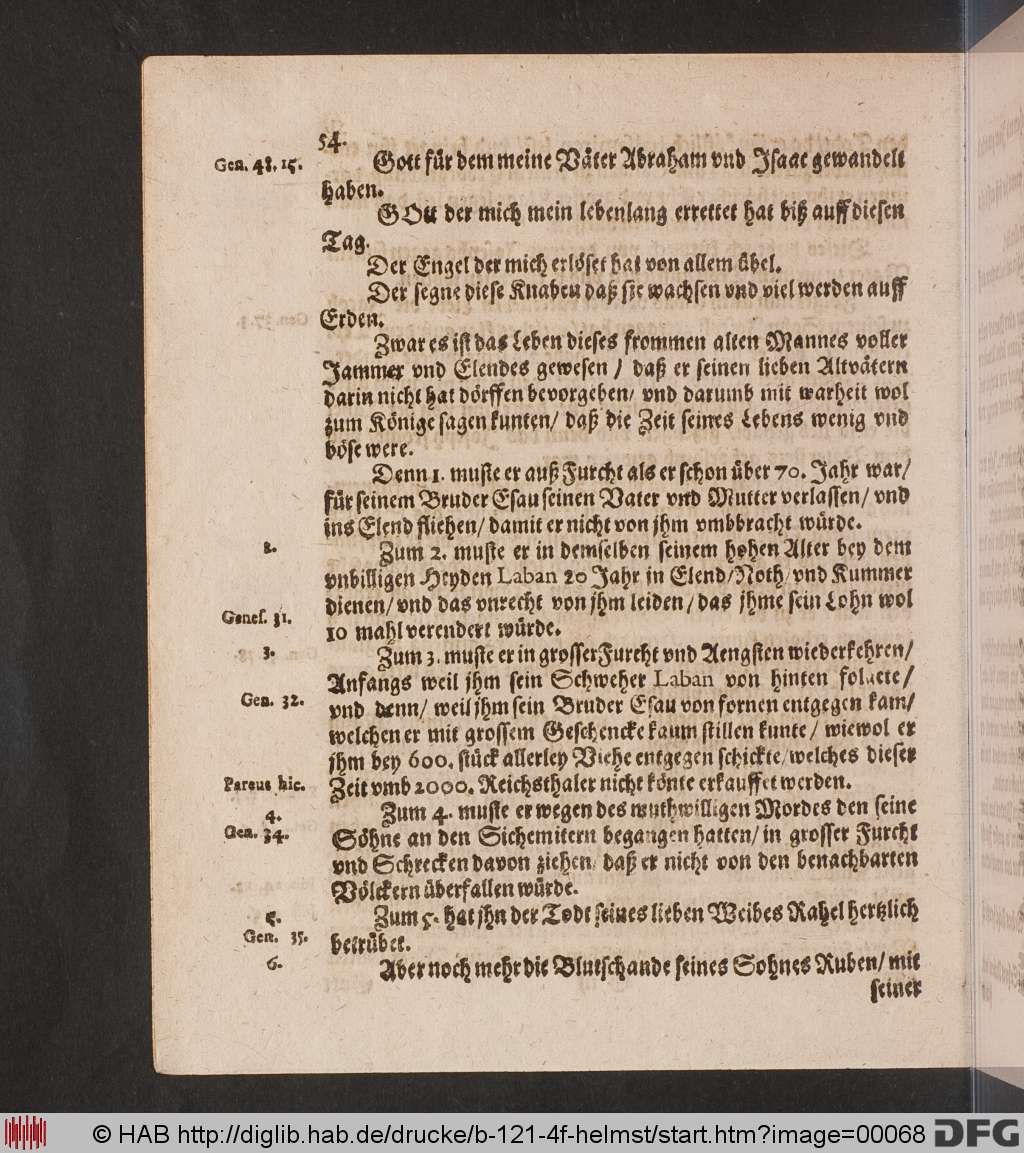 54.
Gen. 48. 15. Gott für dem meine Väter Abraham vnd Isaac gewandelt
haben.
GOtt der mich mein lebenlang errettet hat biß auff diesen
Tag.
Der Engel der mich erlöset hat von allem übel.
Der segne diese Knaben daß sie wachsen vnd viel werden auff
Erden.
Zwar es ist das Leben dieses frommen alten Mannes voller
Jammer vnd Elendes gewesen / daß er seinen lieben Altvätern
darin nicht hat dörffen bevorgeben / vnd darumb mit warheit wol
zum Könige sagen kunten / daß die Zeit seines Lebens wenig vnd
böse were.
Denn 1. muste er auß Furcht als er schon über 70. Jahr war /
für seinem Bruder Esau seinen Vater vnd Mutter verlassen / vnd
ins Elend fliehen / damit er nicht von jhm vmbbracht würde.
2. Zum 2. muste er in demselben seinem hohen Alter bey dem
vnbilligen Heyden Laban 20 Jahr in Elend / Noth / vnd Kummer
dienen / vnd das vnrecht von jhm leiden / das jhme sein Lohn wol
Genes. 31. 10 mahl verendert würde.
3. Zum 3. muste er in grosser Furcht vnd Aengsten wiederkehren /
Anfangs weil jhm sein Schweher Laban von hinten folgete /
Gen. 32. vnd denn / weil jhm sein Bruder Esau von fornen entgegen kam /
welchen er mit grossem Geschencke kaum stillen kunte / wiewol er
jhm bey 600. stück allerley Viehe entgegen schickte / welches dieser
Pareus hic. Zeit vmb 2000. Reichsthaler nicht könte erkauffet werden.
4. Zum 4. muste er wegen des muthwilligen Mordes den seine
Gen. 34. Söhne an den Sichemitern begangen hatten / in grosser Furcht
vnd Schrecken davon ziehen / daß er nicht von den benachbarten
Völckern überfallen würde.
5. Zum 5. hat jhn der Todt seines lieben Weibes Rahel hertzlich
Gen. 35. betrübet.
6. Aber noch mehr die Blutschande seines Sohnes Ruben / mit
seiner
© HAB http://diglib.hab.de/drucke/b-121-4f-helmst/start.htm?image=00068 DFG